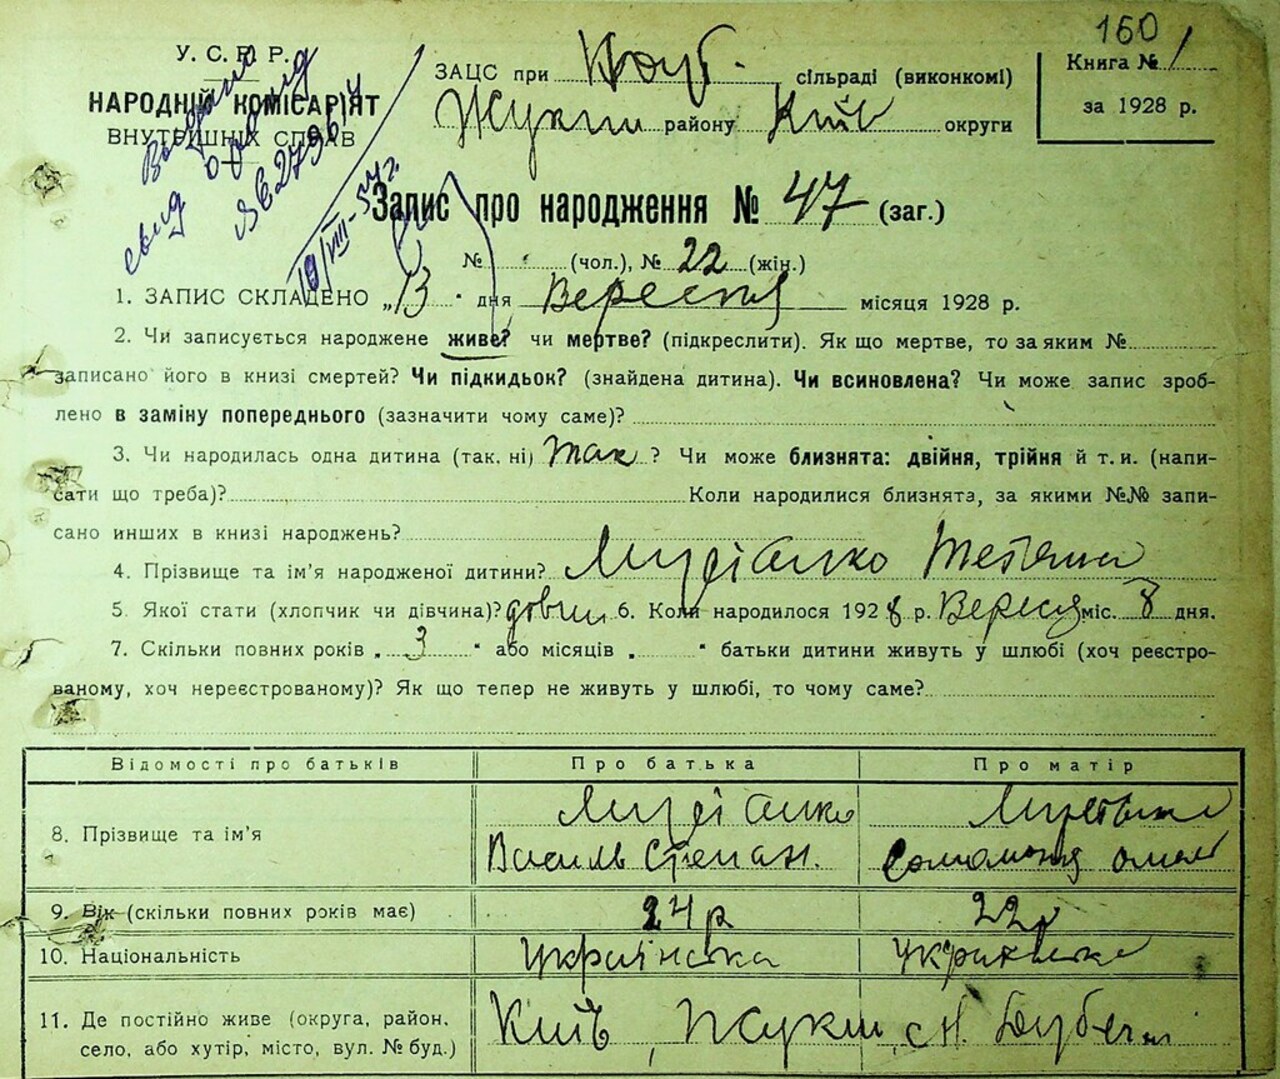 160
У. С. Р. Р.
НАРОДНІЙ КОМІСАРІЯТ
ВНУТРІШНІХ СПРАВ
ЗАЦС при сільраді (виконкомі)
району Київ округи
Книга № 1
за 1928 р.
свид
19/VIII-54 г.
Запис про народження № 47 (заг.)
№ (чол.), № 22 (жін.)
1. ЗАПИС СКЛАДЕНО „13" дня Вересня місяця 1928 р.
2. Чи записується народжене живе? чи мертве? (підкреслити). Як що мертве, то за яким №
записано його в книзі смертей? Чи підкидьок? (знайдена дитина). Чи всиновлена? Чи може запис зроб-
лено в заміну попереднього (зазначити чому саме)?
3. Чи народилась одна дитина (так, ні) так ? Чи може близнята: двійня, трійня й т. и. (напи-
сати що треба)? Коли народилися близнята, за якими №№ запи-
сано инших в книзі народжень?
4. Прізвище та ім'я народженої дитини? Тетяна
5. Якої стати (хлопчик чи дівчина)? 6. Коли народилося 1928 р. Вересня міс. 8 дня.
7. Скільки повних років „ 3 " або місяців „ " батьки дитини живуть у шлюбі (хоч реєстро-
ваному, хоч нереєстрованому)? Як що тепер не живуть у шлюбі, то чому саме?
Відомості про батьків Про батька Про матір
8. Прізвище та ім'я
Василь Степан.
9. Вік (скільки повних років має) 24 р 22 р
10. Національність українська українська
11. Де постійно живе (округа, район,
село, або хутір, місто, вул. № буд.) Київ,